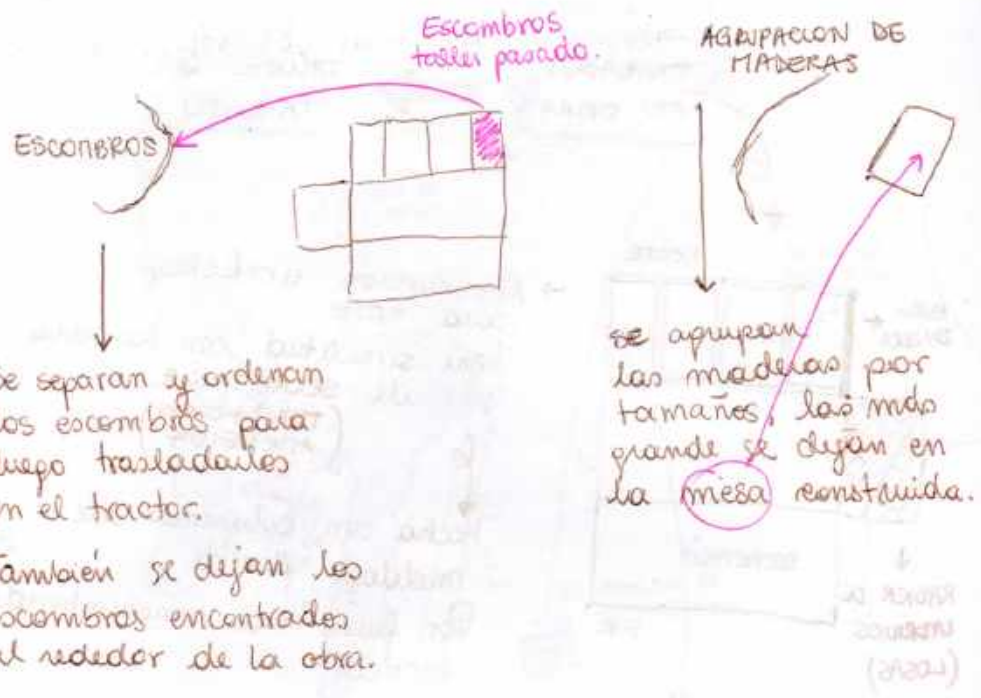 Escombros
taller pasado.
AGRUPACION DE
MADERAS
ESCOMBROS
se separan y ordenan
los escombros para
luego trasladarlos
en el tractor.
También se dejan los
escombros encontrados
al rededor de la obra.
se agrupan
las maderas por
tamaños, las más
grande se dejan en
la mesa construida.